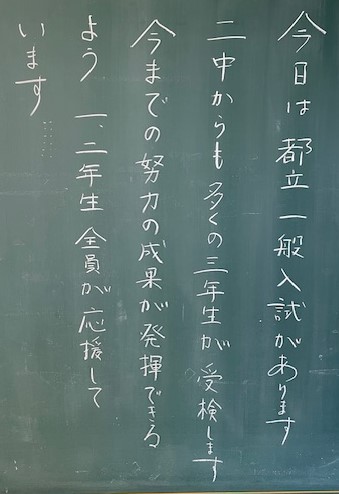 今日は都立一般入試があります
二中からも多くの三年生が受検します
今までの努力の成果が発揮できる
よう 一、二年生 全員が応援して
います